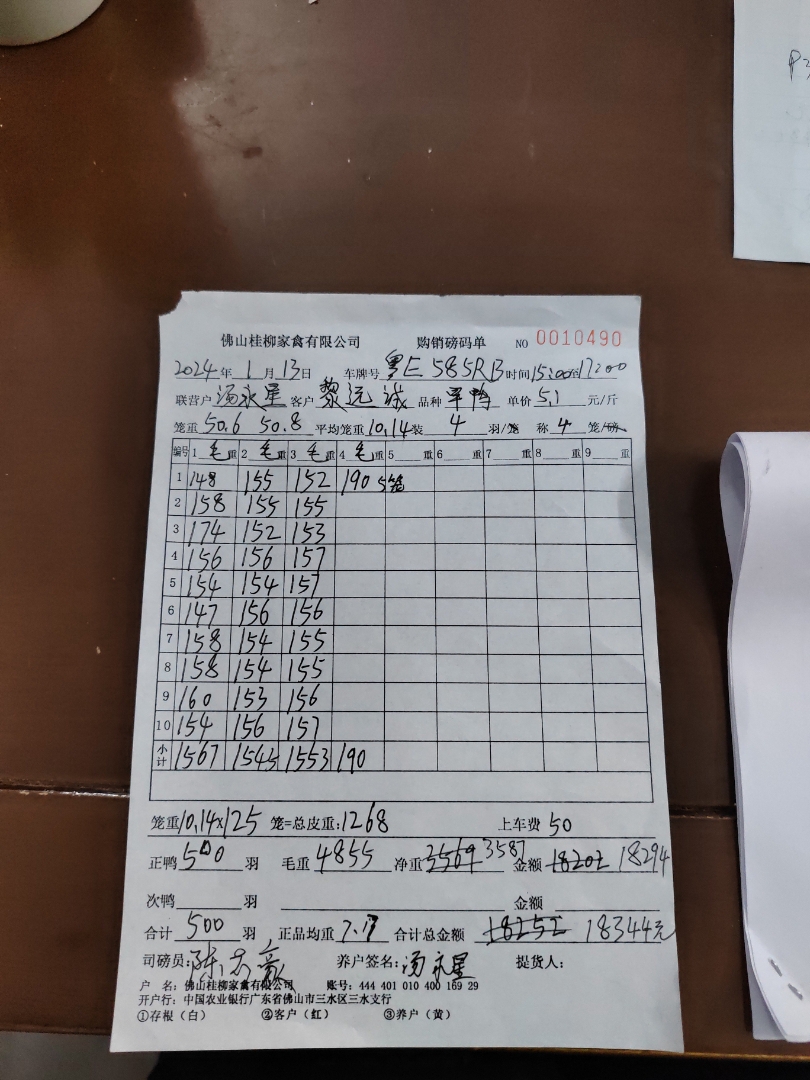 佛山桂柳家禽有限公司 购销磅码单 NO 0010490
2024年 1月 13日 车牌号 粤E 585RB 时间 15:00至17:00
联营户 汤永星 客户 黎远诚 品种 单价 5.1 元/斤
笼重 50.6 50.8 平均笼重 10.14 装 4 羽/笼 称 4 笼/磅
编号 1 毛 重 2 毛 重 3 毛 重 4 毛 重 5 重 6 重 7 重 8 重 9 重
1 148 155 152 190 5笼
2 158 155 155
3 174 152 153
4 156 156 157
5 154 154 157
6 147 156 156
7 158 154 155
8 158 154 155
9 160 153 156
10 154 156 157
小计 1567 1545 1553 190
笼重 10.14×125 笼=总皮重:1268 上车费 50
正鸭 500 羽 毛重 4855 净重 3569 3587 金额 18202 18294
次鸭 羽 金额
合计 500 羽 正品均重 7.17 合计总金额 18252 18344元
司磅员: 养户签名: 汤永星 提货人:
户 名: 佛山桂柳家禽有限公司 账号: 444 401 010 400 169 29
开户行: 中国农业银行广东省佛山市三水区三水支行
①存根（白） ②客户（红） ③养户（黄）